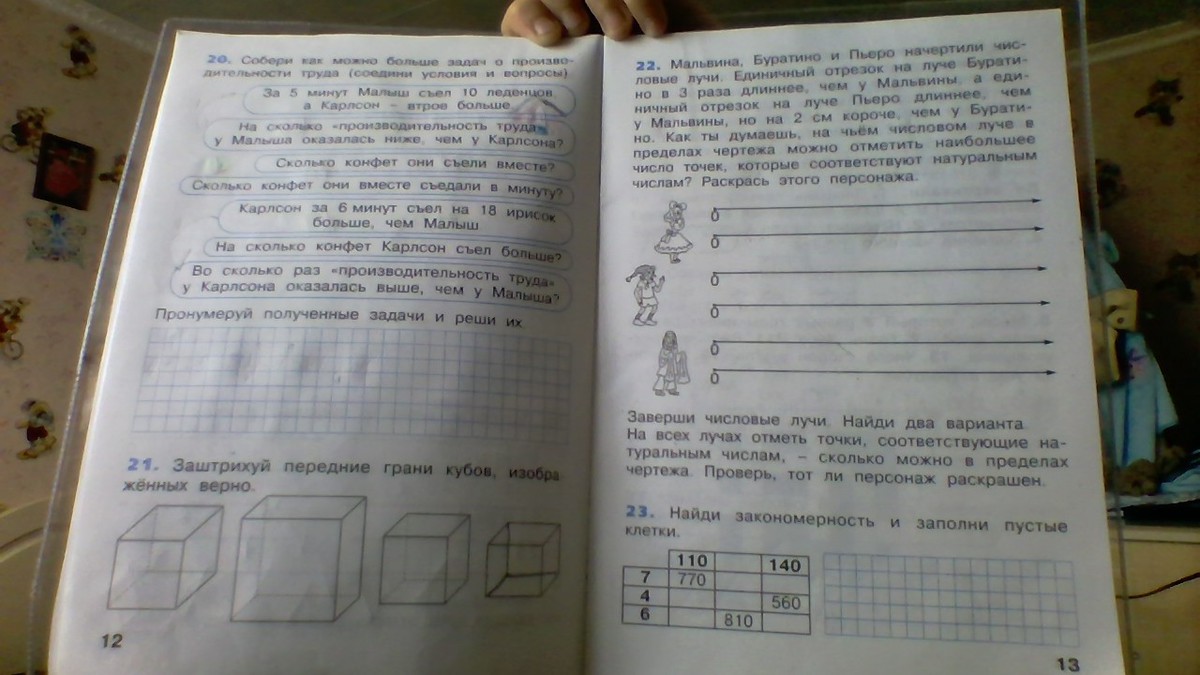 20. Собери как можно больше задач о произво-
дительности труда (соедини условия и вопросы)
За 5 минут Малыш съел 10 леденцов,
а Карлсон – втрое больше
На сколько «производительность труда»
у Малыша оказалась ниже, чем у Карлсона?
Сколько конфет они съели вместе?
Сколько конфет они вместе съедали в минуту?
Карлсон за 6 минут съел на 18 ирисок
больше, чем Малыш
На сколько конфет Карлсон съел больше?
Во сколько раз «производительность труда»
у Карлсона оказалась выше, чем у Малыша?
Пронумеруй полученные задачи и реши их
21. Заштрихуй передние грани кубов, изобра
жённых верно.
12
22. Мальвина, Буратино и Пьеро начертили чис-
ловые лучи. Единичный отрезок на луче Бурати-
но в 3 раза длиннее, чем у Мальвины, а еди-
ничный отрезок на луче Пьеро длиннее, чем
у Мальвины, но на 2 см короче, чем у Бурати-
но. Как ты думаешь, на чьём числовом луче в
пределах чертежа можно отметить наибольшее
число точек, которые соответствуют натуральным
числам? Раскрась этого персонажа.
0
0
0
0
0
0
Заверши числовые лучи. Найди два варианта.
На всех лучах отметь точки, соответствующие на-
туральным числам, – сколько можно в пределах
чертежа. Проверь, тот ли персонаж раскрашен.
23. Найди закономерность и заполни пустые
клетки.
110 140
7 770
4 560
6 810
13